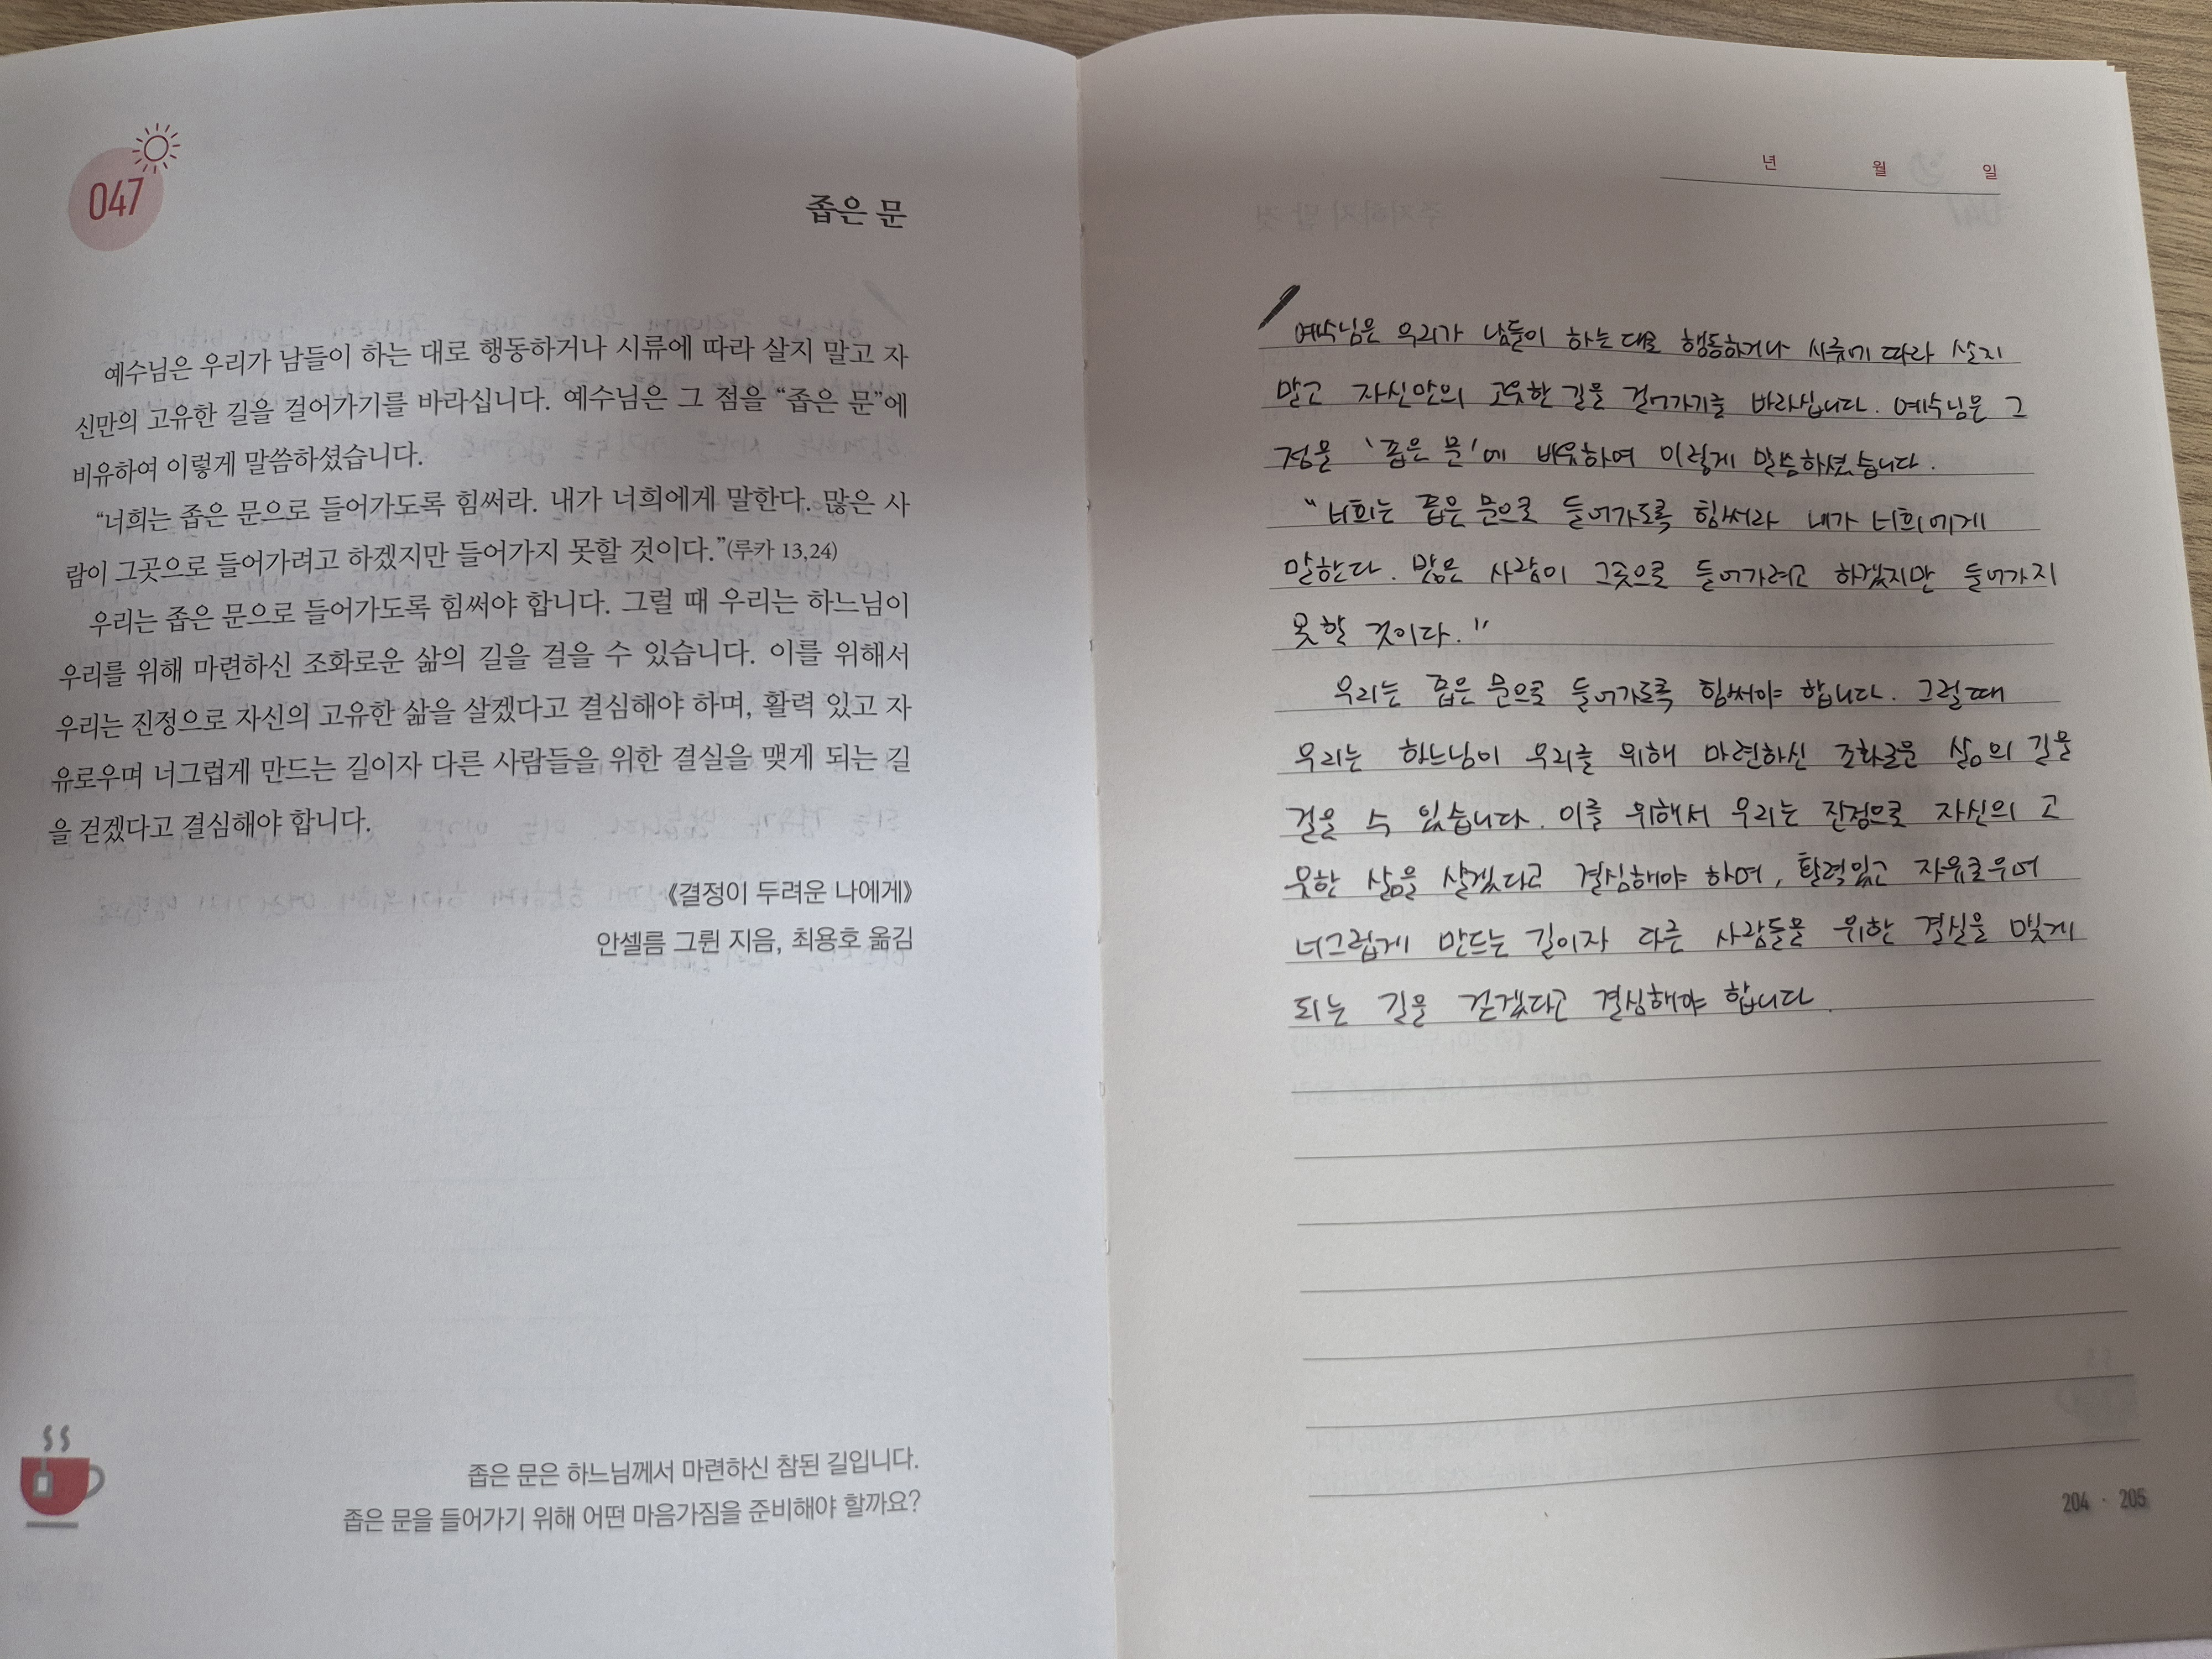 047
좁은 문
예수님은 우리가 남들이 하는 대로 행동하거나 시류에 따라 살지 말고 자
신만의 고유한 길을 걸어가기를 바라십니다. 예수님은 그 점을 “좁은 문”에
비유하여 이렇게 말씀하셨습니다.
“너희는 좁은 문으로 들어가도록 힘써라. 내가 너희에게 말한다. 많은 사
람이 그곳으로 들어가려고 하겠지만 들어가지 못할 것이다.”(루카 13,24)
우리는 좁은 문으로 들어가도록 힘써야 합니다. 그럴 때 우리는 하느님이
우리를 위해 마련하신 조화로운 삶의 길을 걸을 수 있습니다. 이를 위해서
우리는 진정으로 자신의 고유한 삶을 살겠다고 결심해야 하며, 활력 있고 자
유로우며 너그럽게 만드는 길이자 다른 사람들을 위한 결실을 맺게 되는 길
을 걷겠다고 결심해야 합니다.
《결정이 두려운 나에게》
안셀름 그륀 지음, 최용호 옮김
좁은 문은 하느님께서 마련하신 참된 길입니다.
좁은 문을 들어가기 위해 어떤 마음가짐을 준비해야 할까요?
년 월 일
예수님은 우리가 남들이 하는 대로 행동하거나 시류에 따라 살지
말고 자신만의 고유한 길을 걸어가기를 바라십니다. 예수님은 그
점을 '좁은 문'에 비유하여 이렇게 말씀하셨습니다.
"너희는 좁은 문으로 들어가도록 힘써라 내가 너희에게
말한다. 많은 사람이 그곳으로 들어가려고 하겠지만 들어가지
못할 것이다."
우리는 좁은 문으로 들어가도록 힘써야 합니다. 그럴때
우리는 하느님이 우리를 위해 마련하신 조화로운 삶의 길을
걸을 수 있습니다. 이를 위해서 우리는 진정으로 자신의 고
유한 삶을 살겠다고 결심해야 하며, 활력있고 자유로우며
너그럽게 만드는 길이자 다른 사람들을 위한 결실을 맺게
되는 길을 걷겠다고 결심해야 합니다.
204 · 205